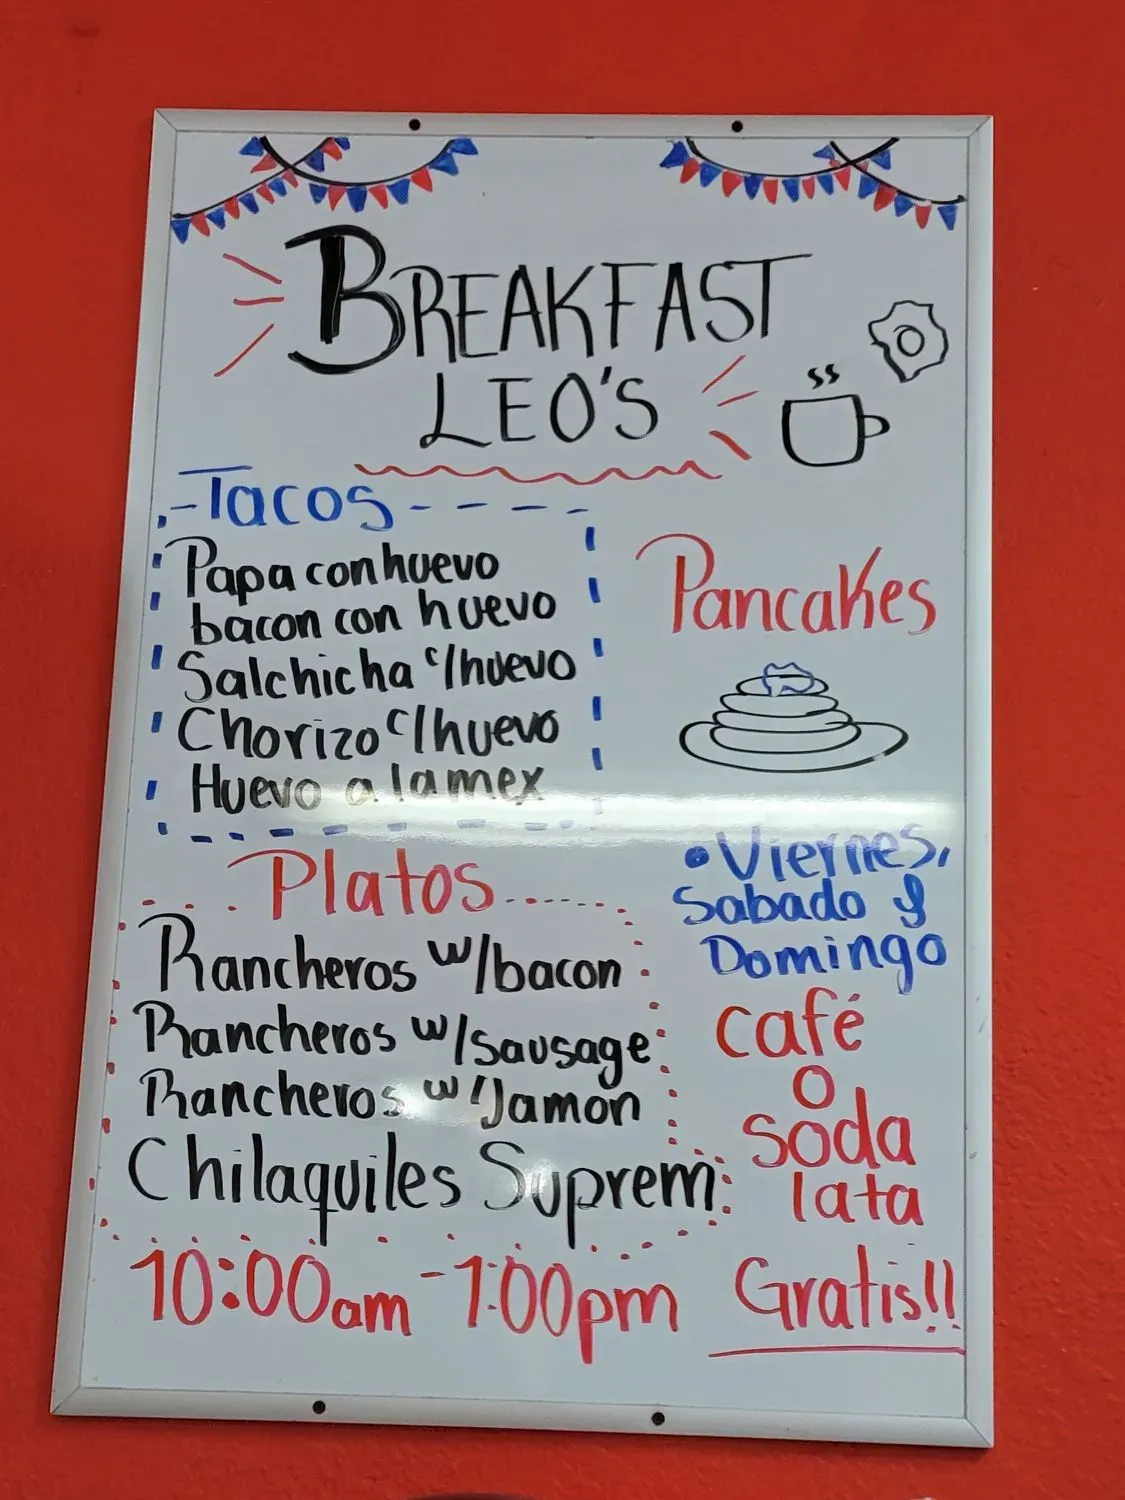 BREAKFAST
LEO'S
Tacos
Papa con huevo
bacon con huevo
Salchicha c/huevo
Chorizo c/huevo
Huevo a la mex
Pancakes
Platos
Rancheros w/bacon
Rancheros w/sausage
Rancheros w/Jamon
Chilaquiles Suprem
10:00am - 1:00pm
• Viernes,
Sabado y
Domingo
café
o
soda
lata
Gratis!!